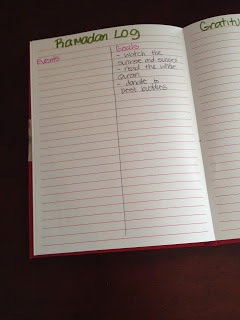 Ramadan Log
Gratitu
Events
Goals
- watch the
sunrise and sunset
- read the whole
Quran
- donate to
best buddies